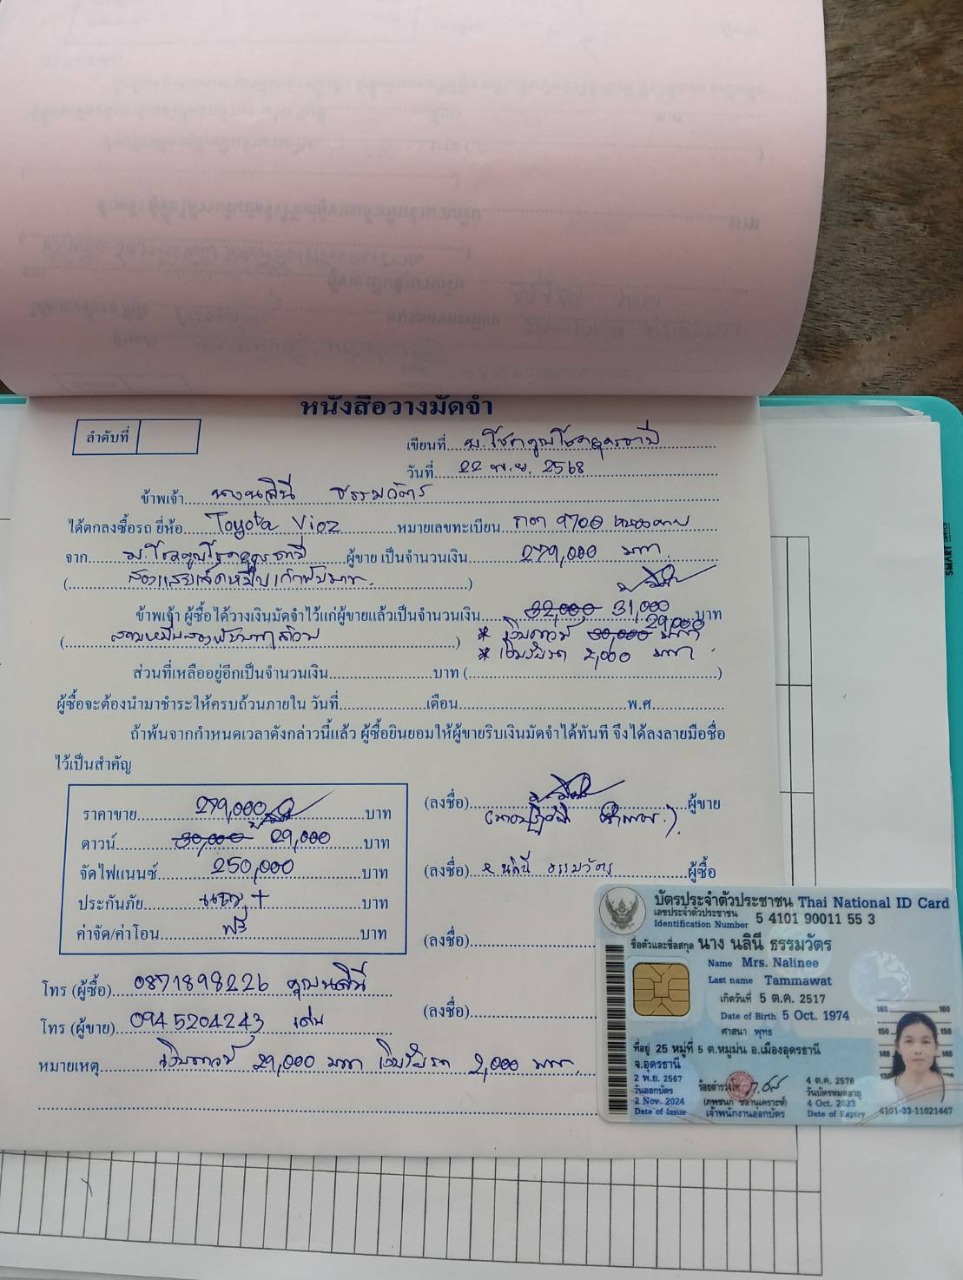 หนังสือวางมัดจำ
ลำดับที่
เขียนที่
วันที่ 22 พ.ย. 2568
ข้าพเจ้า นางนลินี ธรรมวัตร
ได้ตกลงซื้อรถ ยี่ห้อ Toyota Vioz หมายเลขทะเบียน 9700
จาก ผู้ขาย เป็นจำนวนเงิน 279,000 บาท
(สองแสนเจ็ดหมื่นเก้าพันบาท)
ข้าพเจ้า ผู้ซื้อได้วางเงินมัดจำไว้แก่ผู้ขายแล้วเป็นจำนวนเงิน 32,000 31,000 บาท
(สามหมื่นสองพันบาทถ้วน) * เงินดาวน์ 30,000 29,000 บาท
* เงินรับรถ 2,000 บาท
ส่วนที่เหลืออยู่อีกเป็นจำนวนเงิน บาท ( )
ผู้ซื้อจะต้องนำมาชำระให้ครบถ้วนภายใน วันที่ เดือน พ.ศ.
ถ้าพ้นจากกำหนดเวลาดังกล่าวนี้แล้ว ผู้ซื้อยินยอมให้ผู้ขายริบเงินมัดจำได้ทันที จึงได้ลงลายมือชื่อ
ไว้เป็นสำคัญ
ราคาขาย 279,000 บาท
ดาวน์ 30,000 29,000 บาท
จัดไฟแนนซ์ 250,000 บาท
ประกันภัย บาท
ค่าจัด/ค่าโอน ฟรี บาท
(ลงชื่อ) ผู้ขาย
(ลงชื่อ) นลินี ธรรมวัตร ผู้ซื้อ
(ลงชื่อ)
(ลงชื่อ)
โทร (ผู้ซื้อ) 0871898226 คุณนลินี
โทร (ผู้ขาย) 0945204243 เด่น
หมายเหตุ เงินดาวน์ 29,000 บาท เงินรับรถ 2,000 บาท
บัตรประจำตัวประชาชน Thai National ID Card
เลขประจำตัวประชาชน 5 4101 90011 55 3
Identification Number
ชื่อตัวและชื่อสกุล นาง นลินี ธรรมวัตร
Name Mrs. Nalinee
Last name Tammawat
เกิดวันที่ 5 ต.ค. 2517
Date of Birth 5 Oct. 1974
ศาสนา พุทธ
ที่อยู่ 25 หมู่ที่ 5 ต.หมูม่น อ.เมืองอุดรธานี
จ.อุดรธานี
2 พ.ย. 2567
วันออกบัตร
2 Nov. 2024
Date of Issue
เจ้าพนักงานออกบัตร
4 ต.ค. 2576
วันบัตรหมดอายุ
4 Oct. 2033
Date of Expiry
4101-03-11021447
SMART